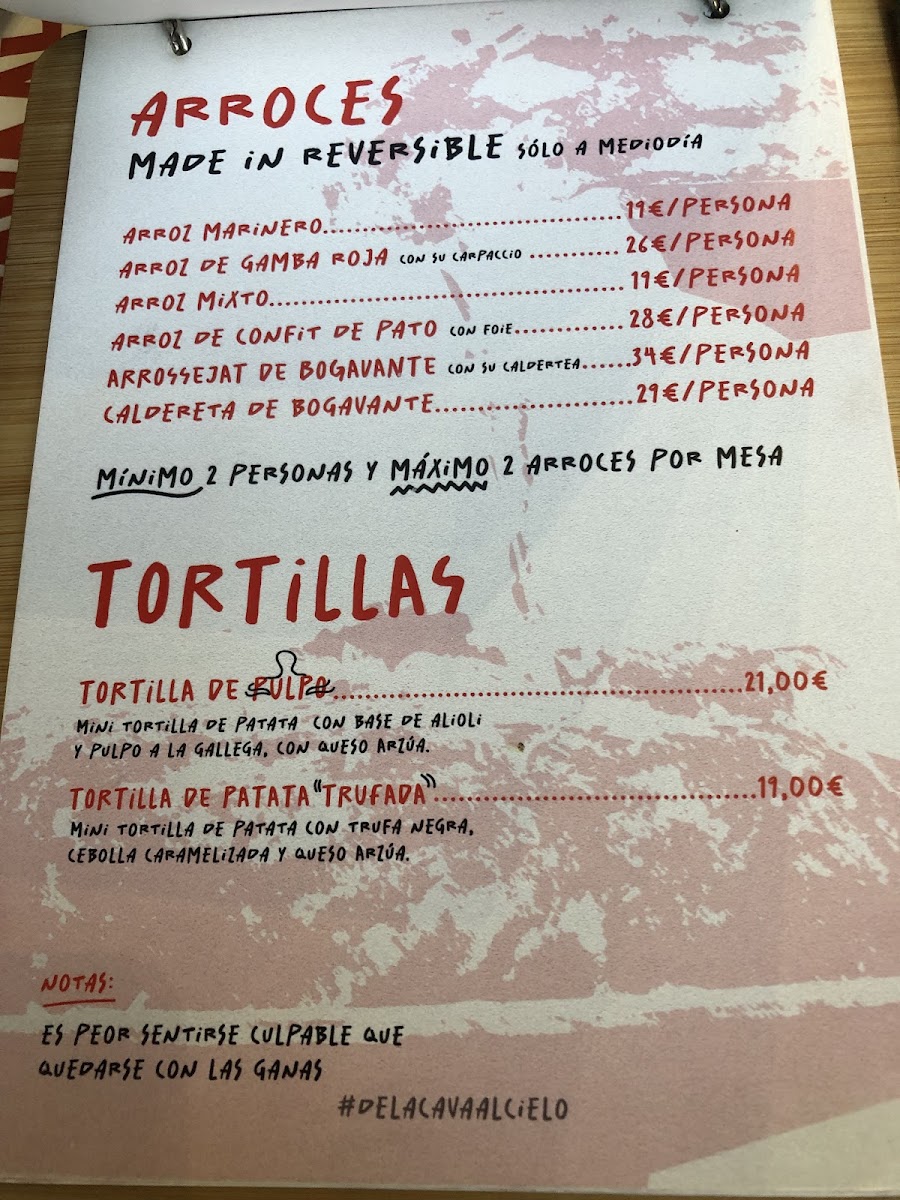 ARROCES
MADE iN REVERSiBLE SÓLO A MEDiODÍA
ARROZ MARiNERO..........19€/PERSONA
ARROZ DE GAMBA ROJA CON SU CARPACCiO .......... 26€/PERSONA
ARROZ MiXTO.......... 19€/PERSONA
ARROZ DE CONFiT DE PATO CON FOiE.......... 28€/PERSONA
ARROSSEJAT DE BOGAVANTE CON SU CALDERTEA......34€/PERSONA
CALDERETA DE BOGAVANTE..........29€/PERSONA
MÍNiMO 2 PERSONAS Y MÁXiMO 2 ARROCES POR MESA
TORTiLLAS
TORTiLLA DE PULPO..........21,00€
MiNi TORTiLLA DE PATATA CON BASE DE ALiOLi
Y PULPO A LA GALLEGA, CON QUESO ARZÚA.
TORTiLLA DE PATATA "TRUFADA"..........19,00€
MiNi TORTiLLA DE PATATA CON TRUFA NEGRA,
CEBOLLA CARAMELiZADA Y QUESO ARZÚA.
NOTAS:
ES PEOR SENTiRSE CULPABLE QUE
QUEDARSE CON LAS GANAS
#DELACAVAALCiELO